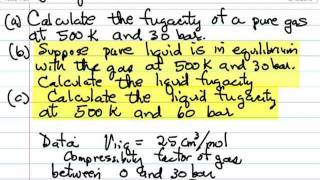 (a) Calculate the fugacity of a pure gas
at 500 K and 30 bar.
(b) Suppose pure liquid is in equilibrium
with the gas at 500 K and 30 bar.
Calculate the liquid fugacity
(c) Calculate the liquid fugacity
at 500 K and 60 bar
Data: Vliq = 25 cm³/mol
Compressibility factor of gas
between 0 and 30 bar